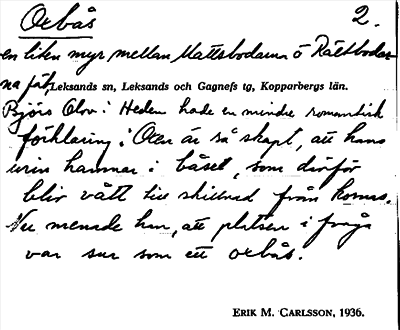 Orbås 2.
en liten myr mellan Mattsbodarna o Rältbodar-
na fäb.
Leksands sn, Leksands och Gagnefs tg, Kopparbergs län.
Björs Olov i Heden hade en mindre romantisk
förklaring: Oxen är så skapt, att hans
urin hamnar i båset, som därför
blir vått till skillnad från kornas.
Nu menade han, att platsen i fråga
var sur som ett orbås.
ERIK M. CARLSSON, 1936.